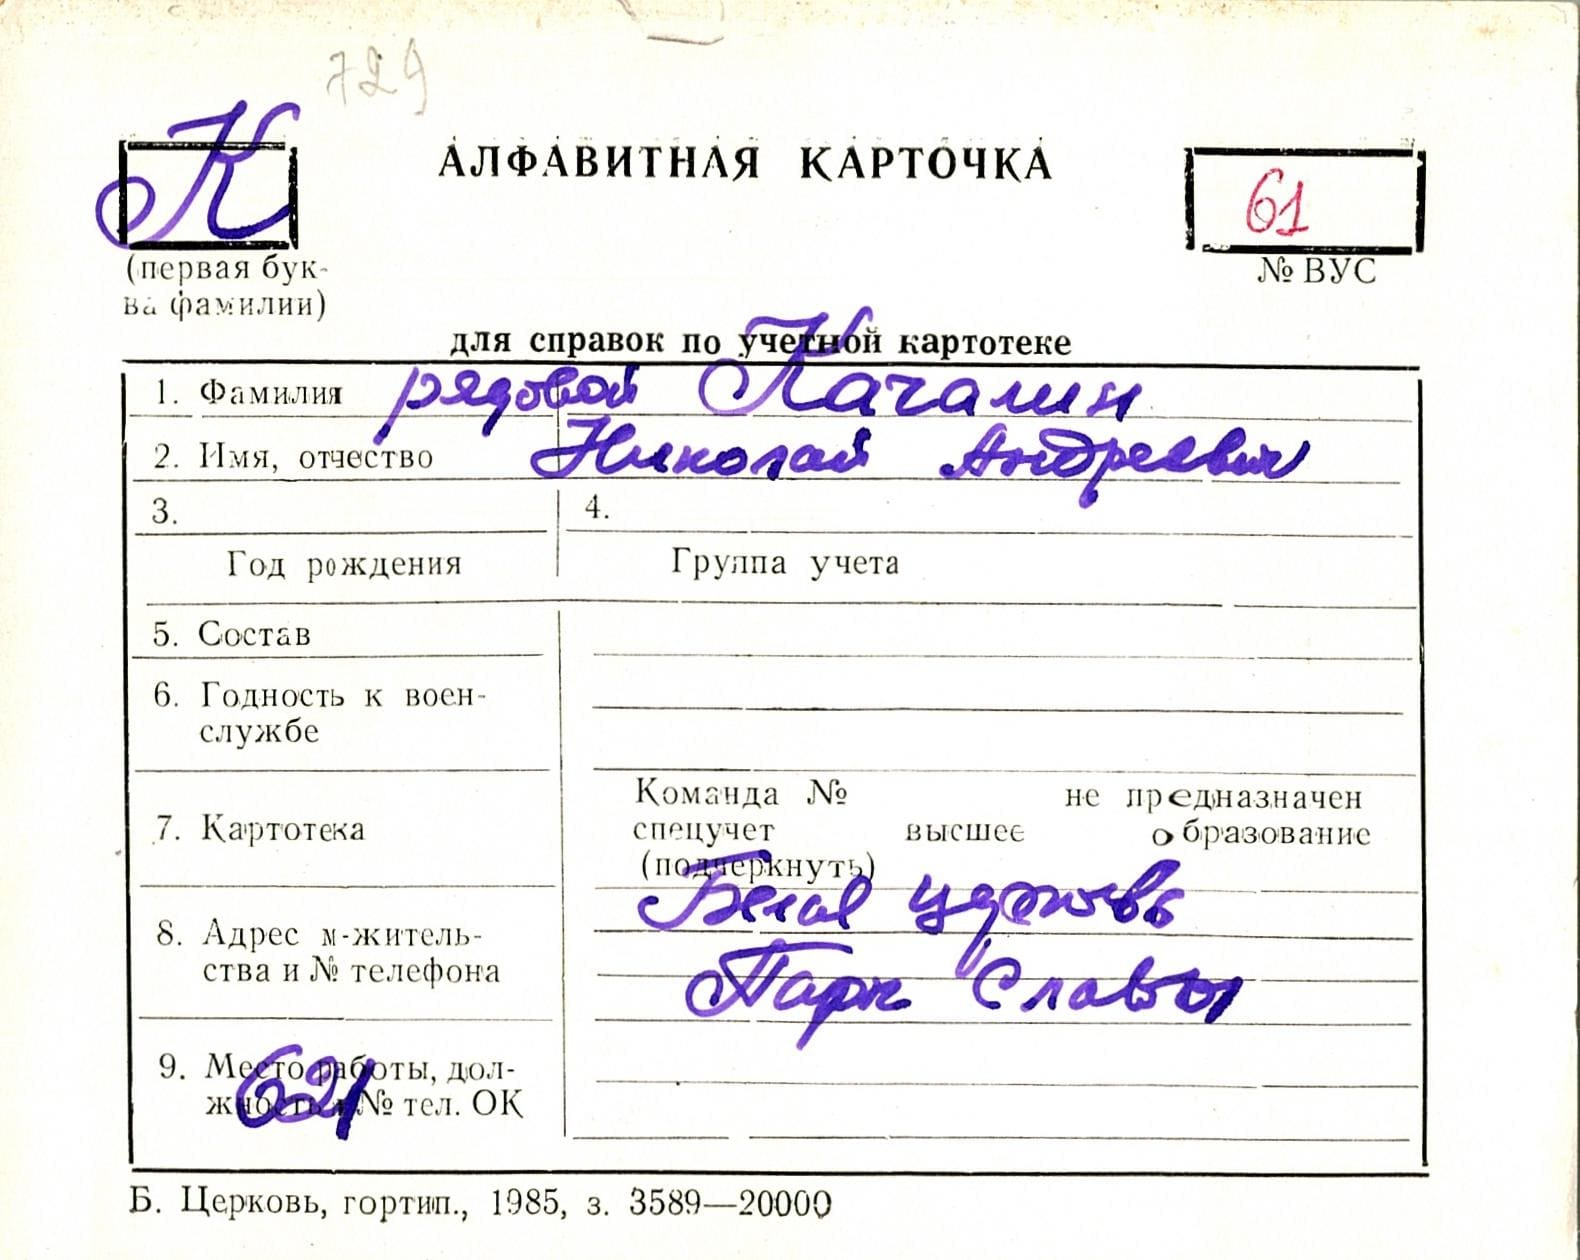 729
К
АЛФАВИТНАЯ КАРТОЧКА
61
(первая бук-
ва фамилии)
№ ВУС
для справок по учетной картотеке
1. Фамилия рядовой Качалин
2. Имя, отчество Николай Андреевич
3. 4.
Год рождения Группа учета
5. Состав
6. Годность к воен-
службе
Команда № не предназначен
7. Картотека спецучет высшее образование
(подчеркнуть)
Белая церковь
8. Адрес м-житель-
ства и № телефона
Парк Славы
9. Место работы, дол-
жность и № тел. ОК
621
Б. Церковь, гортип., 1985, з. 3589—20000